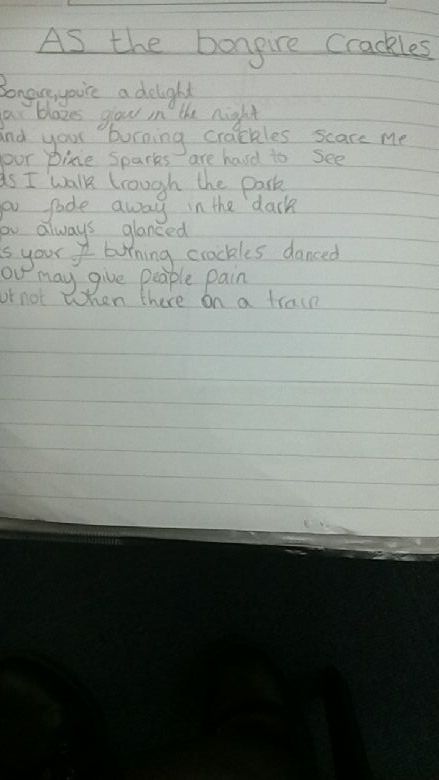 AS the bongire Crackles
Bongire, you're a delight
your blazes glow in the night
and your burning crackles scare me
your pine sparks are hard to see
as I walk trough the park
you fade away in the dark
you always glanced
as your burning crackles danced
you may give people pain
but not when there on a train